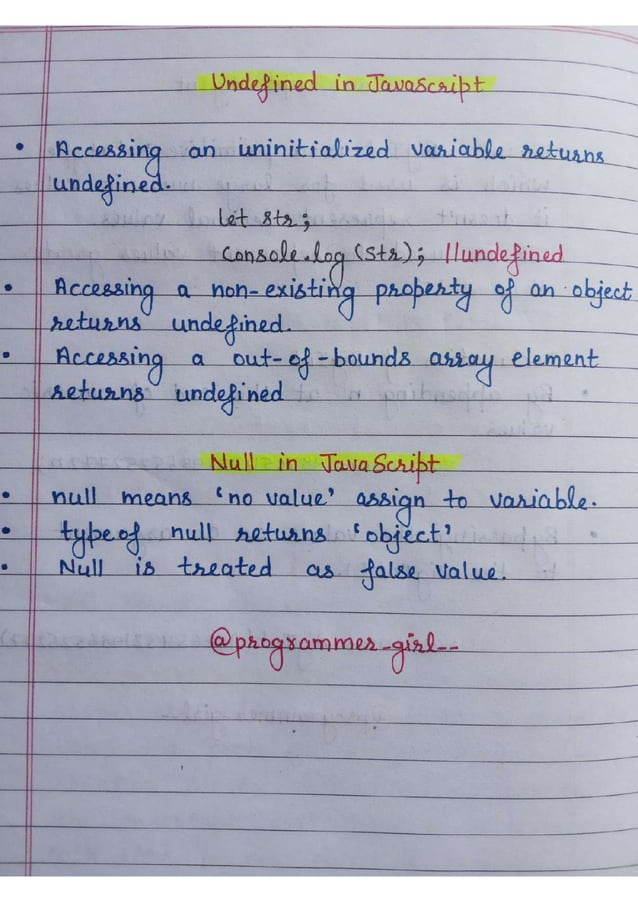 Undefined in JavaScript
• Accessing an uninitialized variable returns
undefined.
let str;
console.log (str); //undefined
• Accessing a non-existing property of an object
returns undefined.
• Accessing a out-of-bounds array element
returns undefined
Null in JavaScript
• null means 'no value' assign to variable.
• typeof null returns 'object'
• Null is treated as false value.
@programmer_girl--